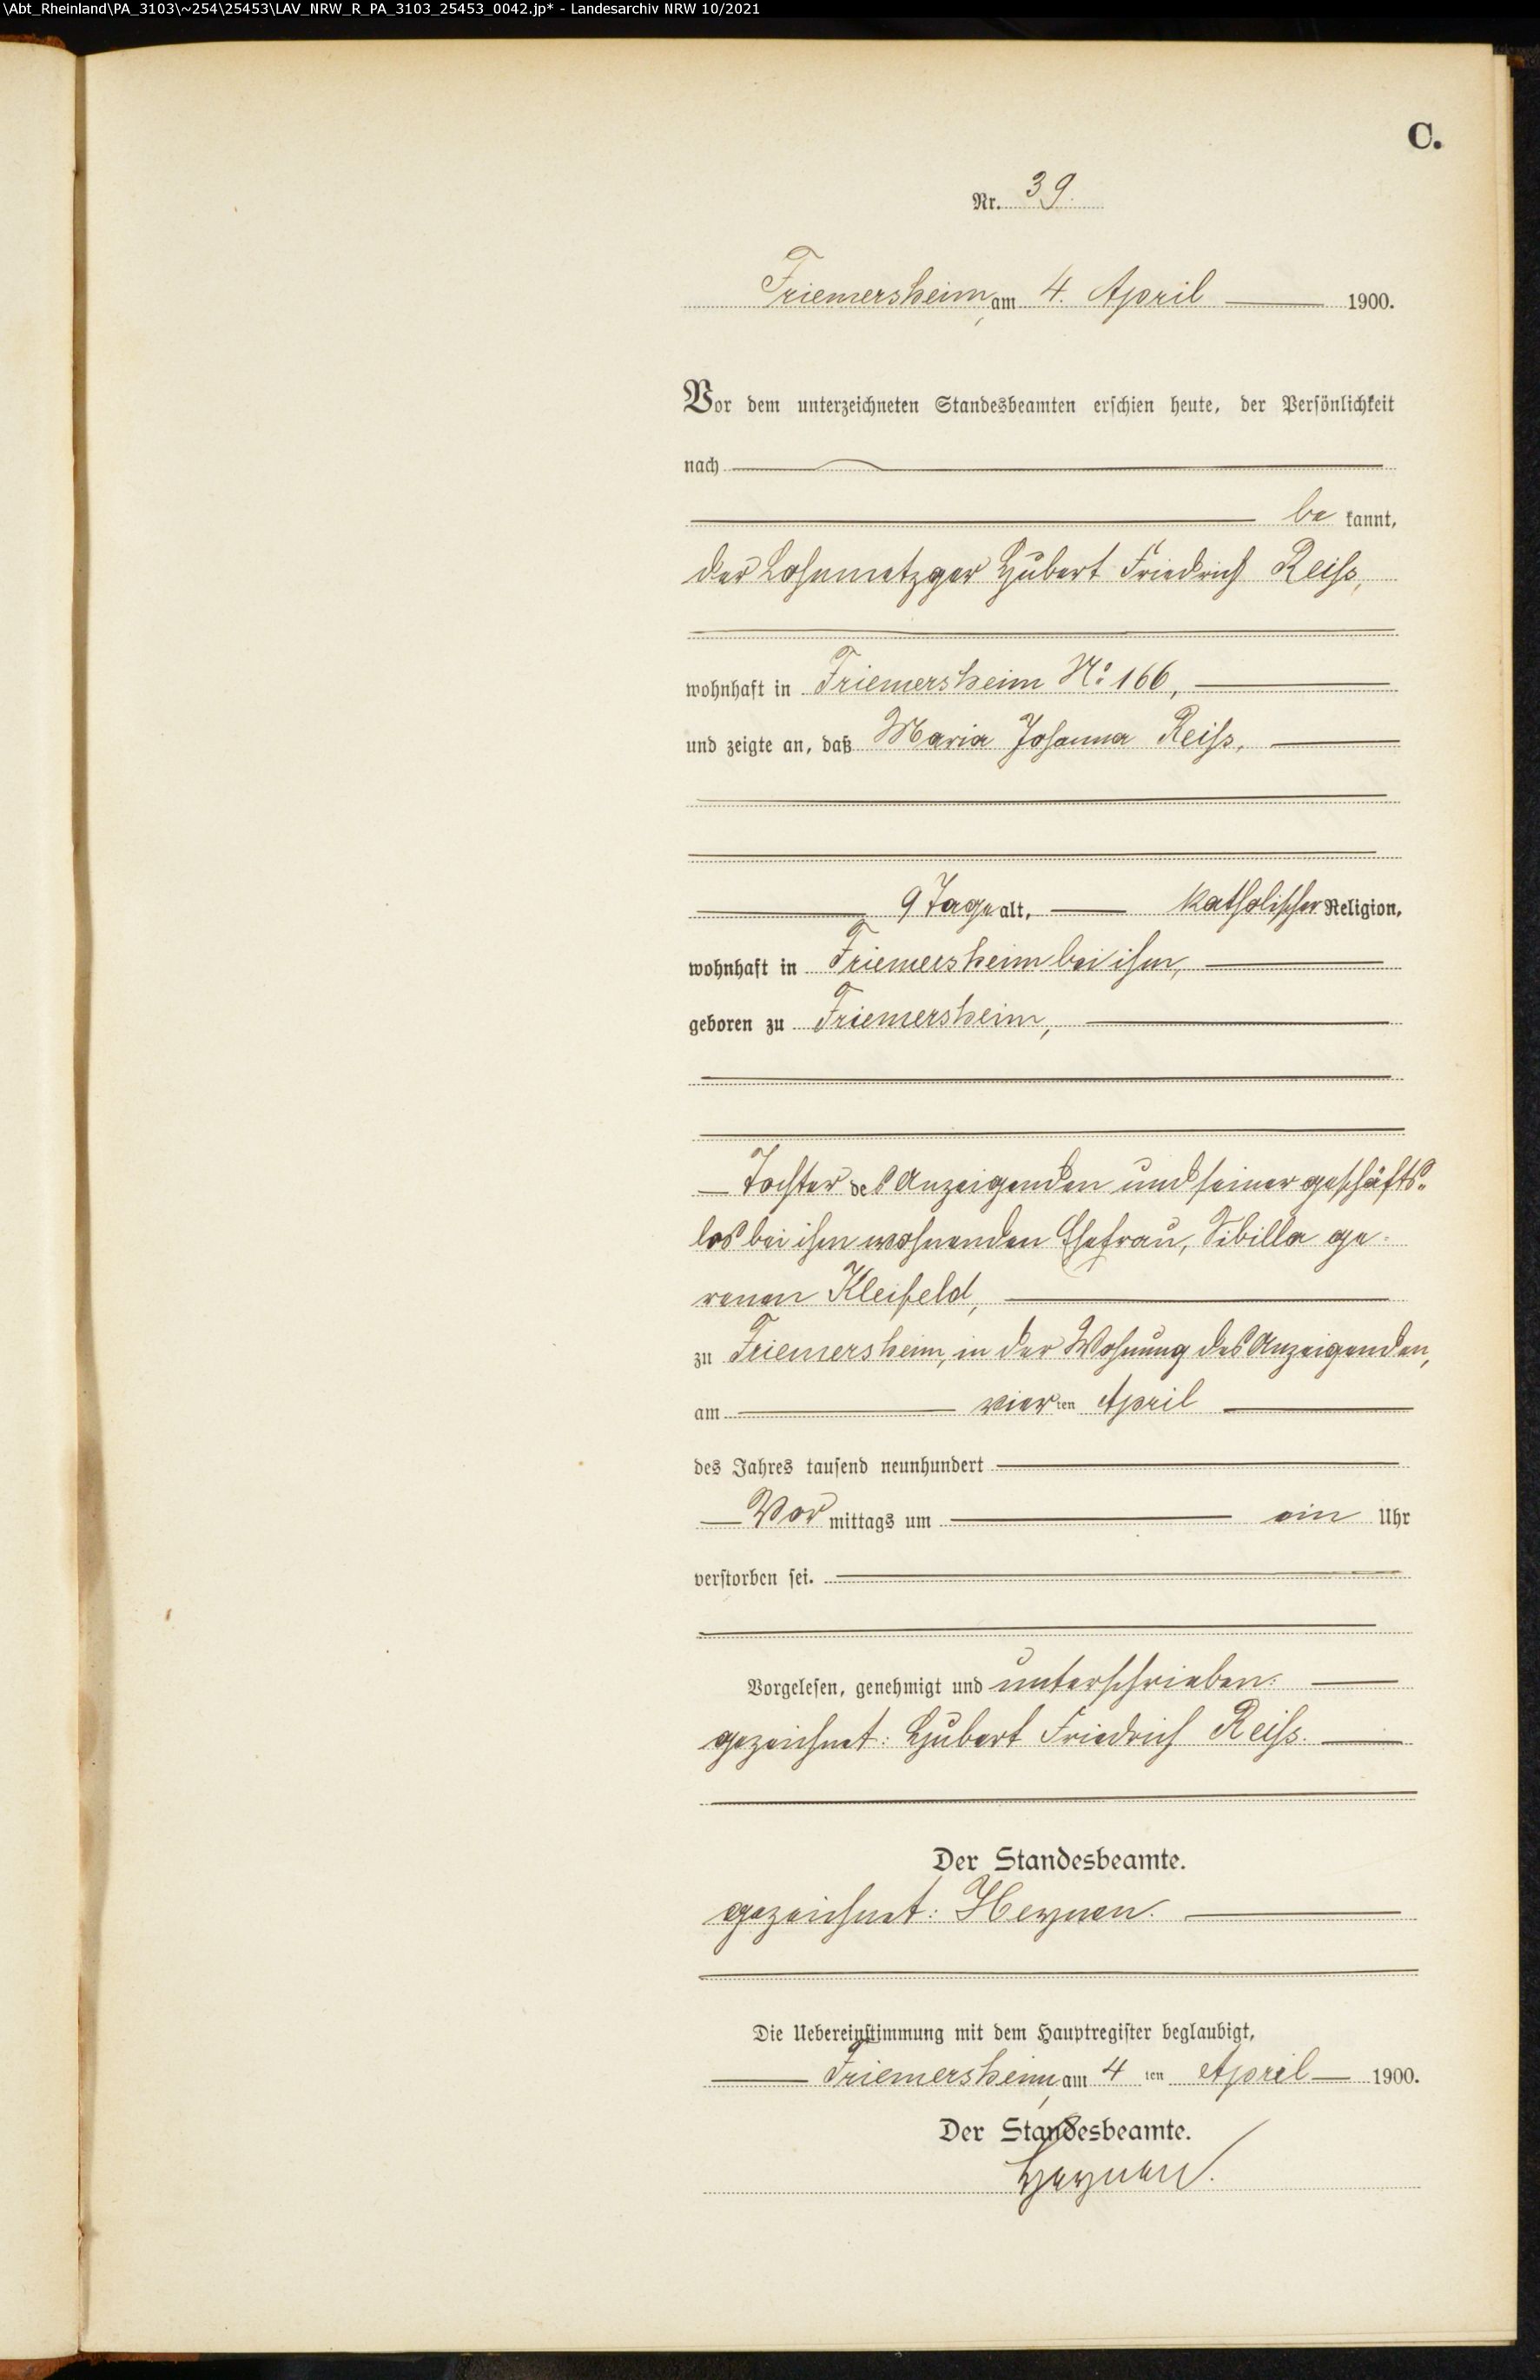 \Abt_Rheinland\PA_3103\~254\25453\LAV_NRW_R_PA_3103_25453_0042.jp* - Landesarchiv NRW 10/2021
C.
Nr. 39.
Friemersheim, am 4. April 1900.
Vor dem unterzeichneten Standesbeamten erschien heute, der Persönlichkeit
nach
be kannt,
der Lohnmetzger Hubert Friedrich Reiss,
wohnhaft in Friemersheim No 166,
und zeigte an, daß Maria Johanna Reiss,
9 Tage alt, katholischer Religion,
wohnhaft in Friemersheim bei ihm,
geboren zu Friemersheim,
Tochter des Anzeigenden und seiner geschäfts-
los bei ihm wohnenden Ehefrau, Sibilla ge-
renen Kleifeld,
zu Friemersheim, in der Wohnung des Anzeigenden,
am vier ten April
des Jahres tausend neunhundert
Vor mittags um ein Uhr
verstorben sei.
Vorgelesen, genehmigt und unterschrieben.
gezeichnet: Hubert Friedrich Reiss.
Der Standesbeamte.
gezeichnet: Heynen.
Die Uebereinstimmung mit dem Hauptregister beglaubigt,
Friemersheim, am 4 ten April 1900.
Der Standesbeamte.
Heynen.